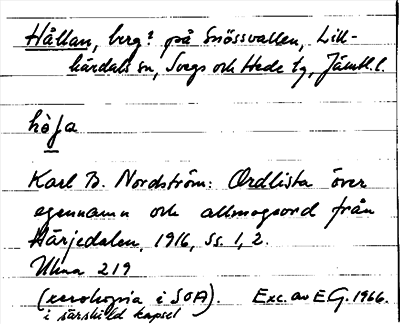 Hållan, berg? på Snössvallen, Lill-
härdals sn, Svegs och Hede tg, Jämtl.l.
Karl B. Nordström: Ordlista över
egennamn och allmogeord från
Härjedalen, 1916, ss. 1, 2.
Ulma 219
(xerokopia i SOA). Exc. av E G. 1966.
i särskild kapsel